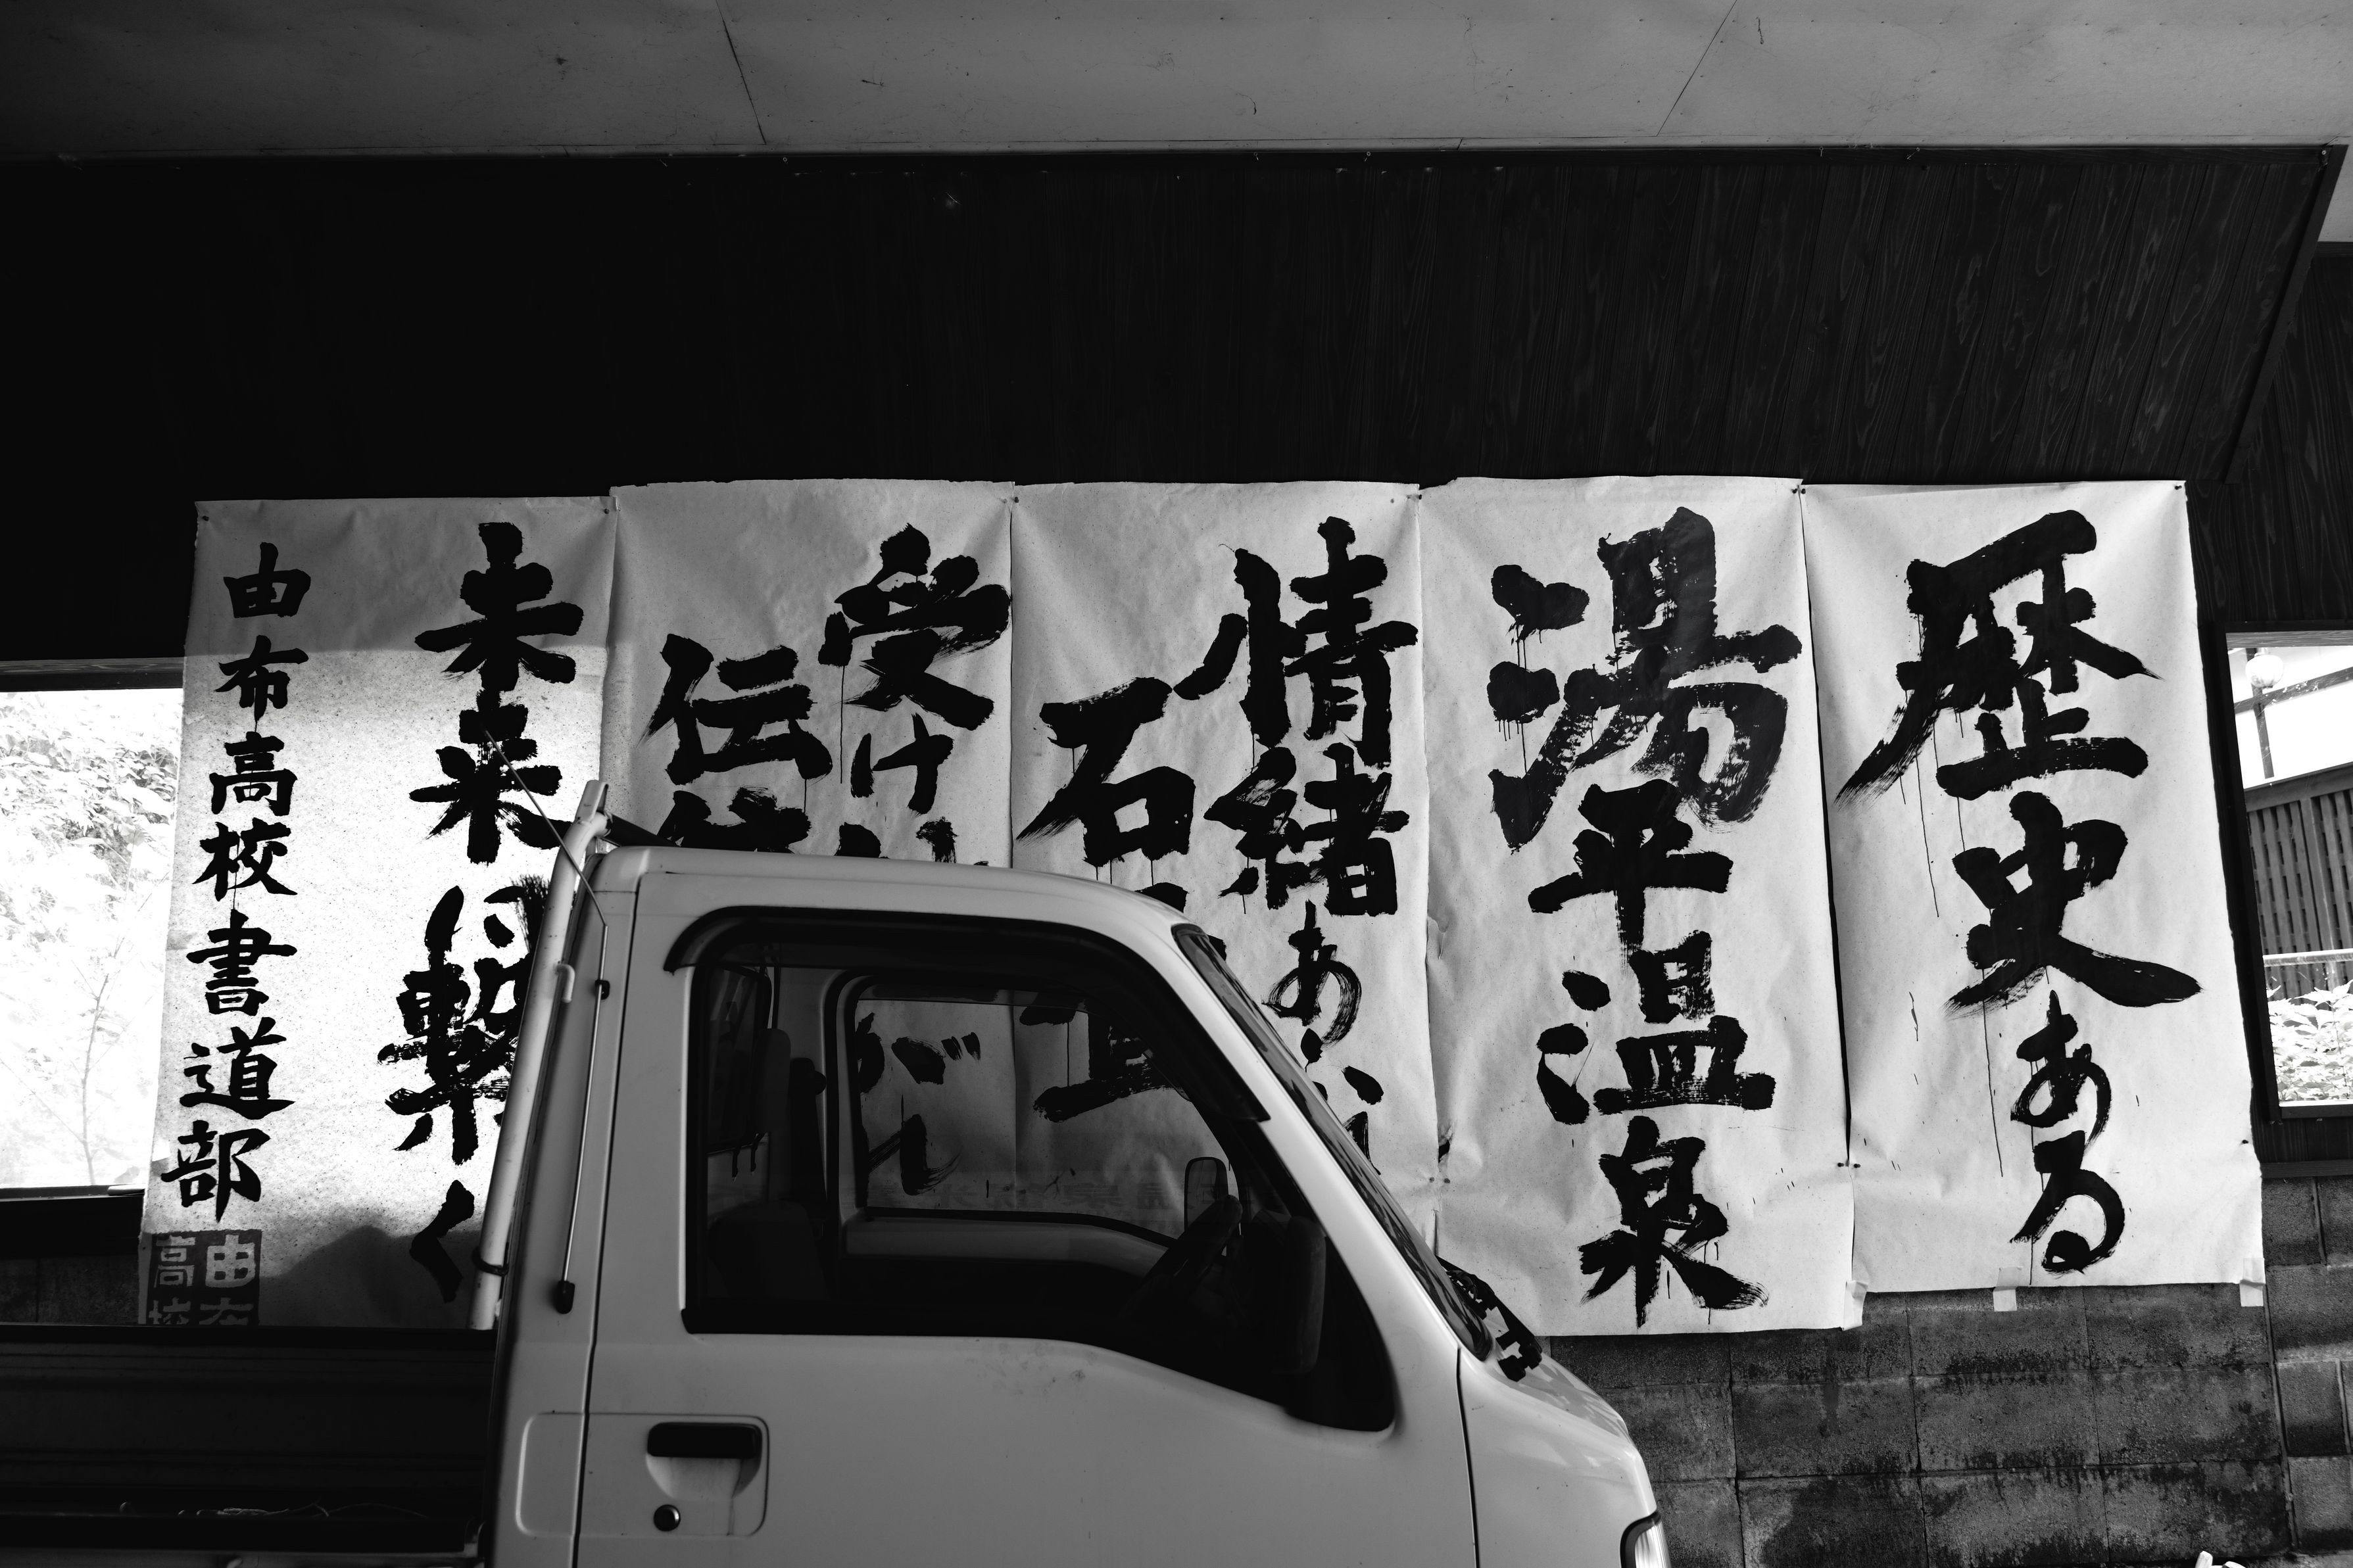 歴史ある
湯平温泉
情緒あ
石
受け
伝
がれ
未来に繋く
由布高校書道部
由布
高校